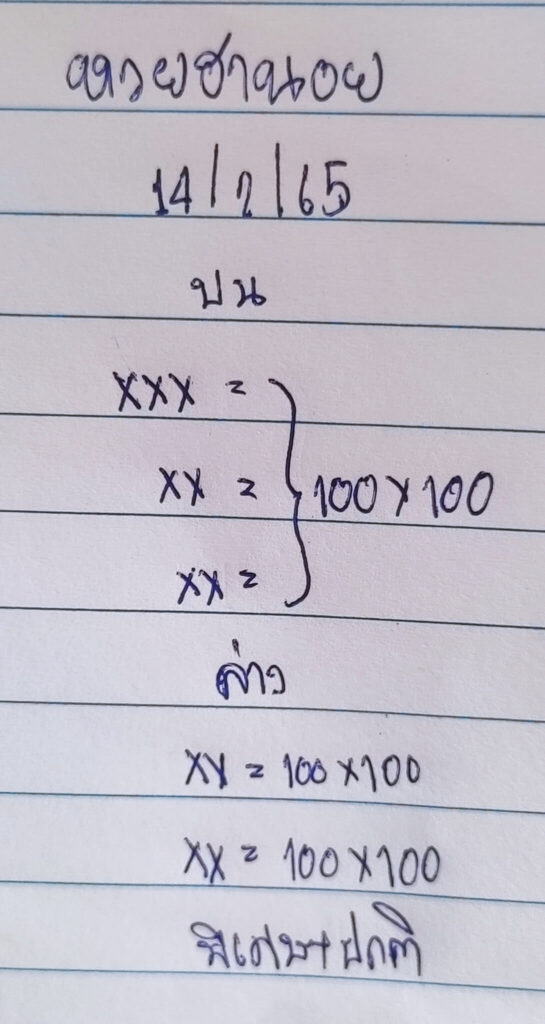 หวยฮานอย
14/2/65
บน
xxx =
xx = } 100x100
xx =
ล่าง
xx = 100x100
xx = 100x100
พิเศษ+ปกติ